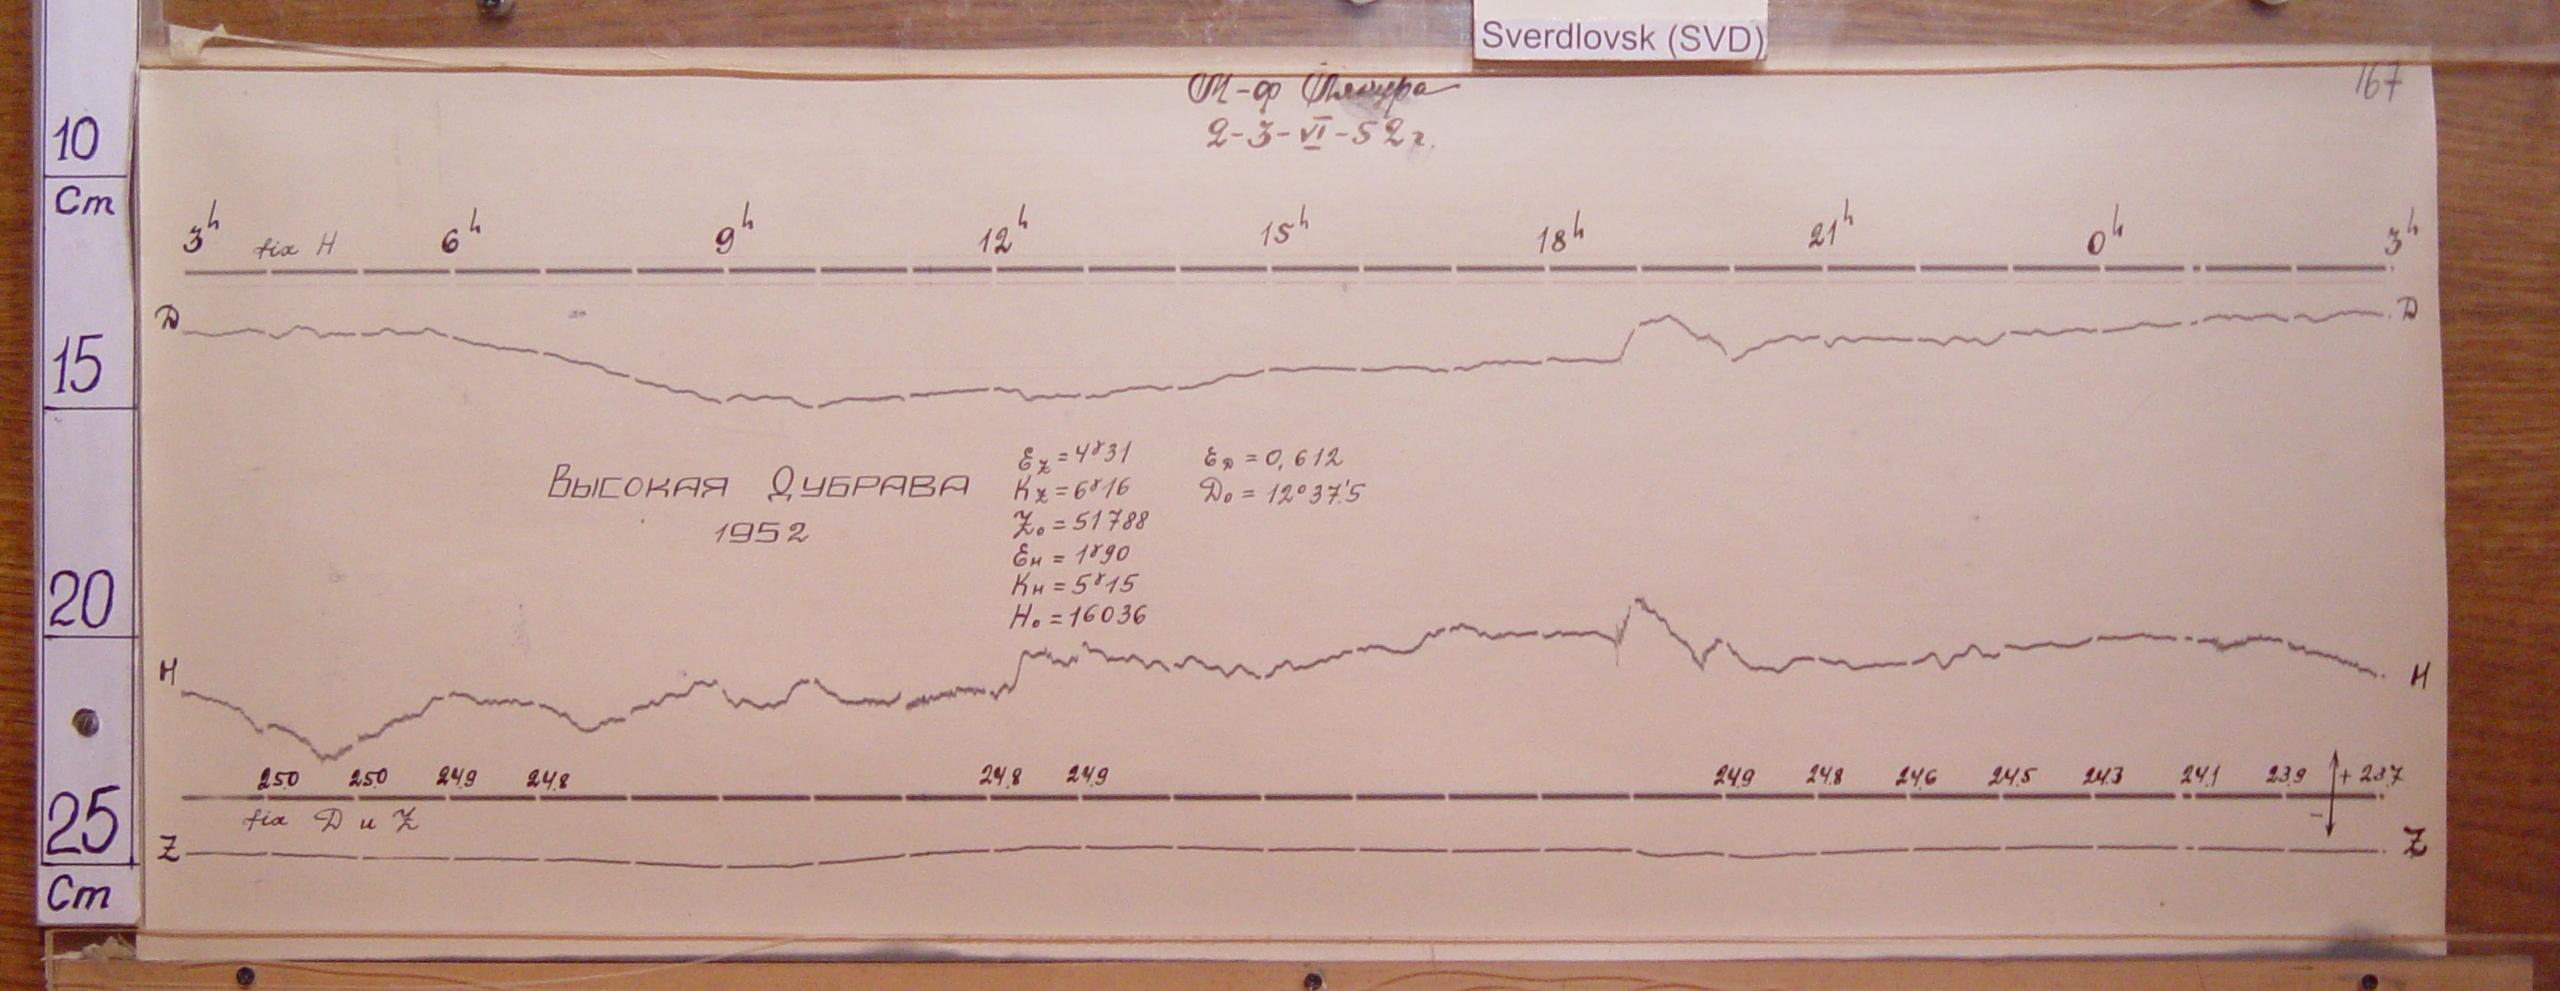 Sverdlovsk (SVD)
167
М-ф
2-3-VI-52 г.
10
Cm
15
20
25
Cm
3h fix H 6h 9h 12h 15h 18h 21h 0h 3h
Д Д
ВЫСОКАЯ ДУБРАВА
1952
Ez = 4γ31
Kz = 6γ16
Z₀ = 51788
Eн = 1γ90
Kн = 5γ15
H₀ = 16036
Eд = 0,612
Д₀ = 12°37.'5
H H
25.0 25.0 24.9 24.8 24.8 24.9 24.9 24.8 24.6 24.5 24.3 24.1 23.9 + 23.7
fix Д и Z −
Z Z